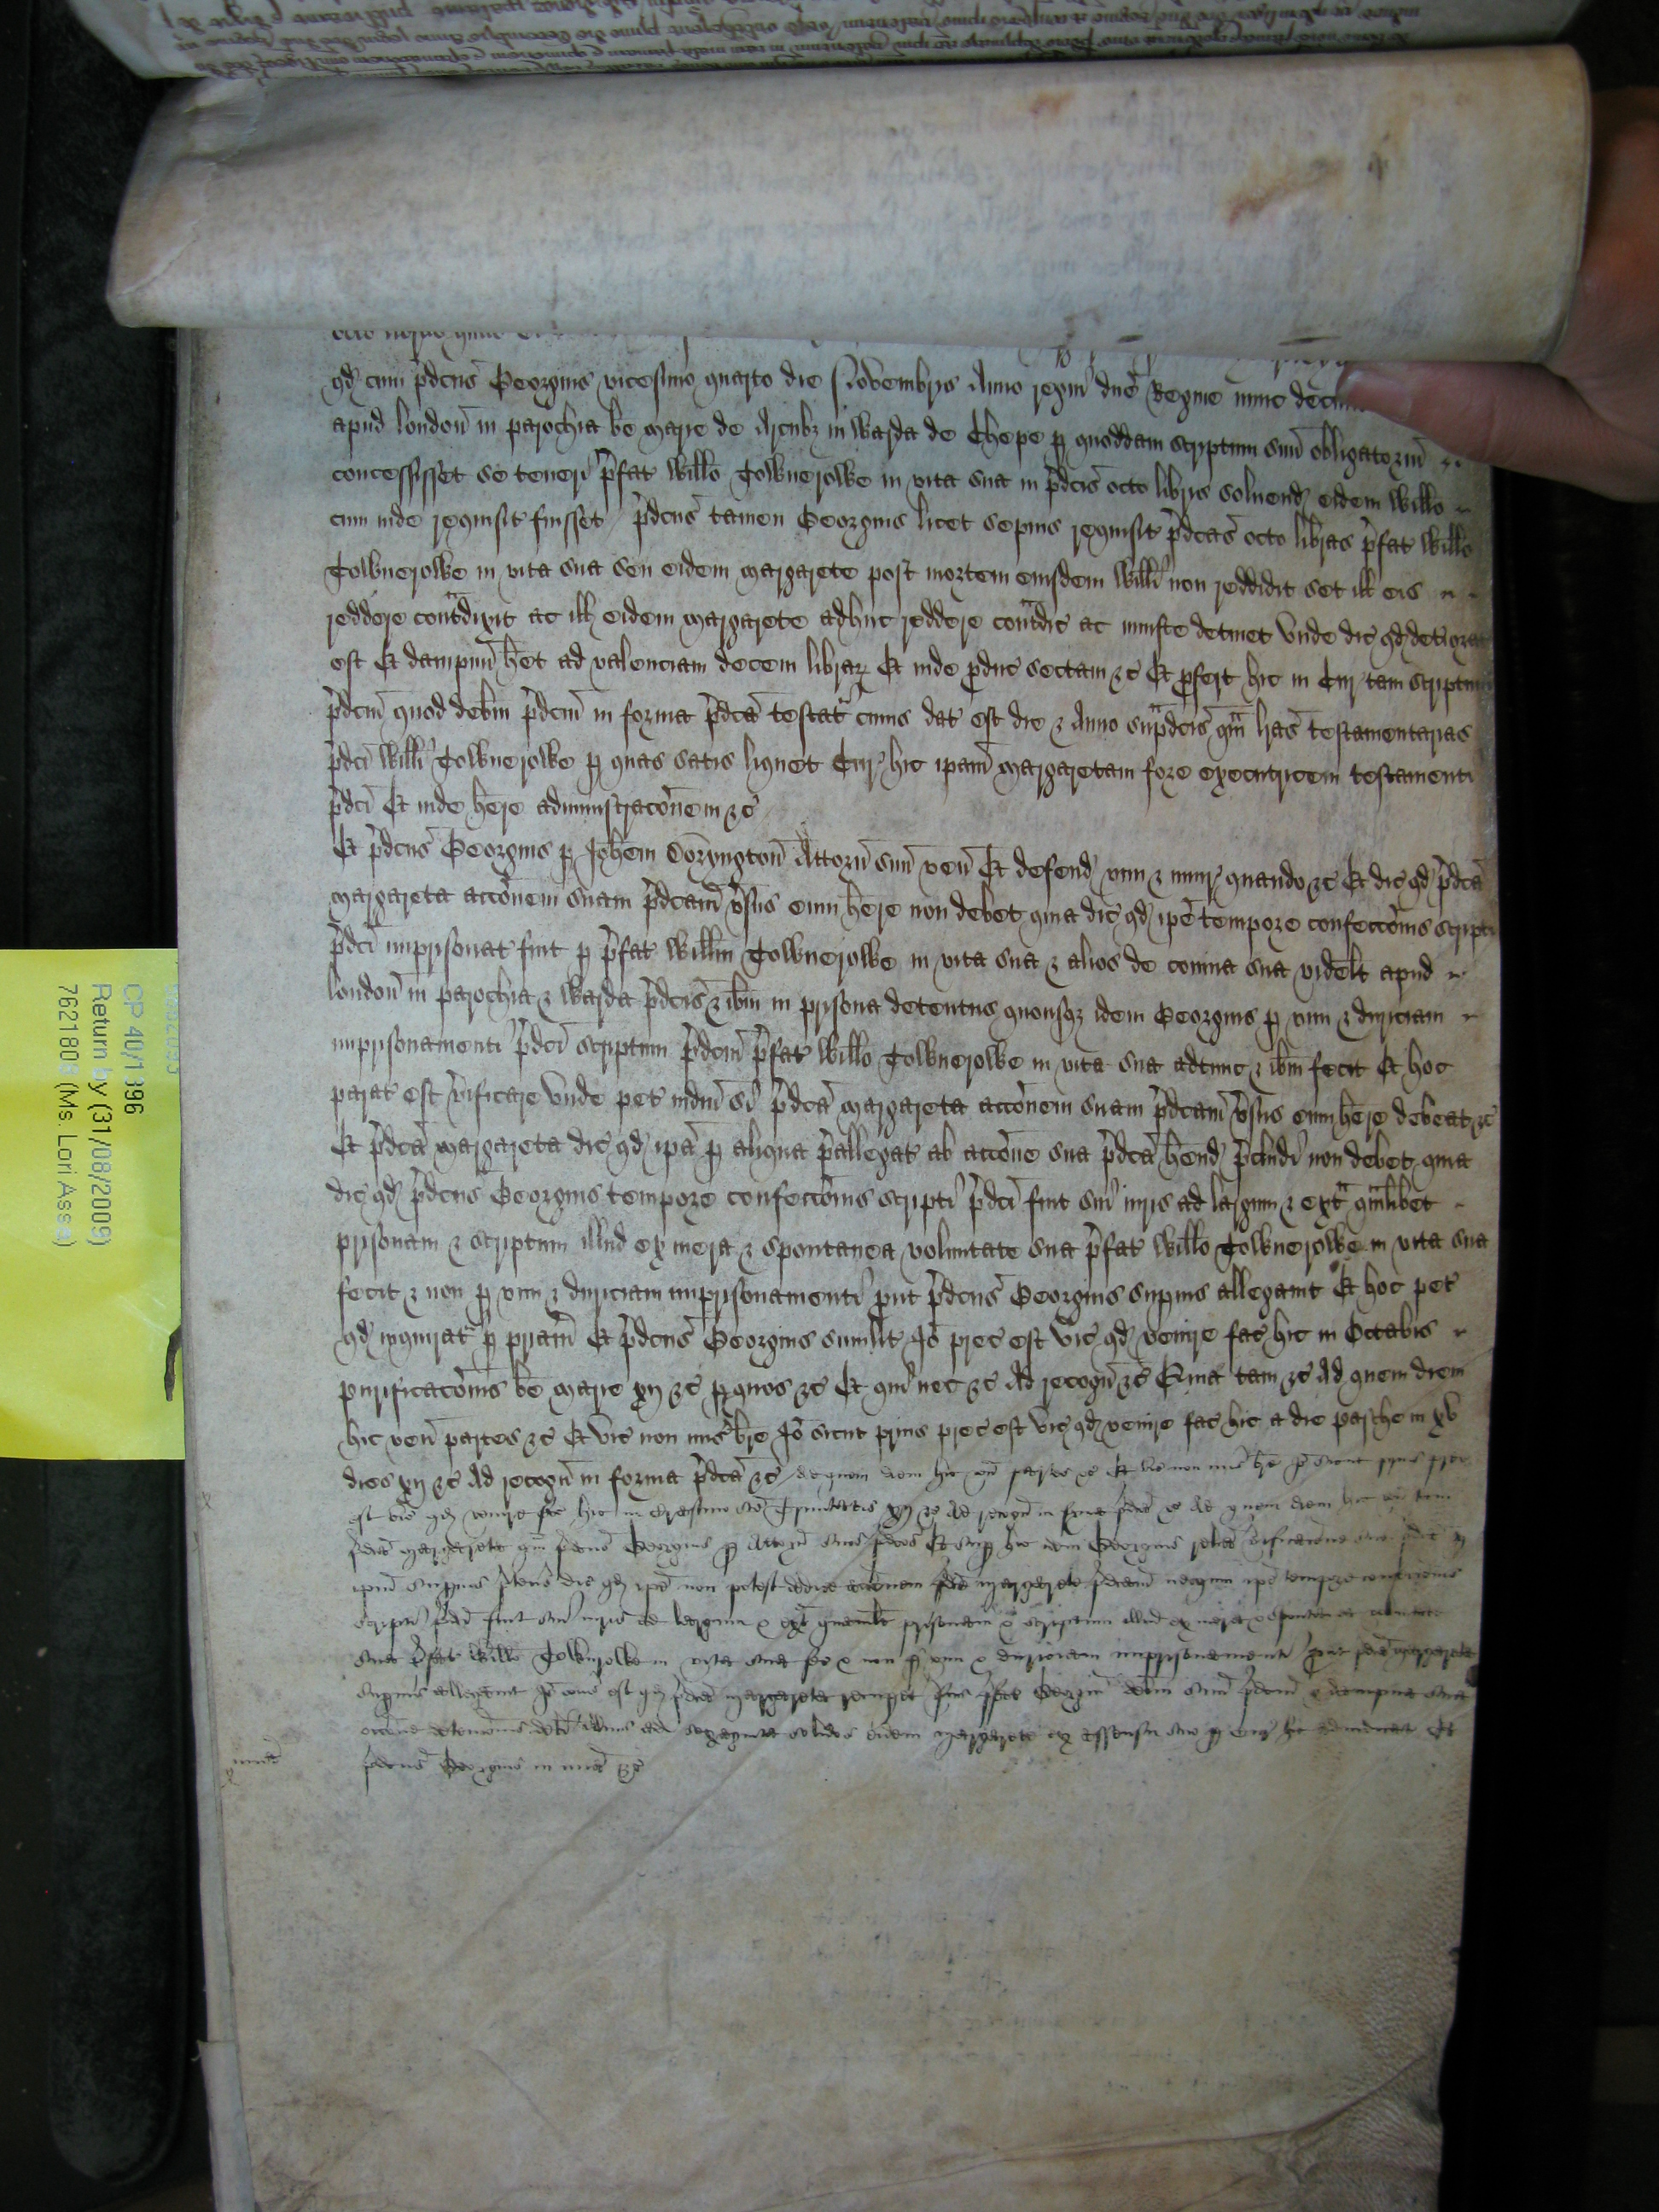 qd cum pdcus Georgius vicesimo quarto die Novembris Anno regni dne Regine nunc
apud london in parochia be marie de Arcubz in warda de Chepe p quoddam scriptum suu obligatoriu
concessisset se teneri pfat Willo Tolwnerowe in vita sua in pdcis octo libris solvend eidem Willo
cum inde requisit fuisset pdcus tamen Georgius licet sepius requisit pdcas octo libras pfat Willo
Tolwnerowe in vita sua seu eidem Margarete post mortem eiusdem Willi non reddidit set ill eis
reddere contdixit ac ill eidem Margarete adhuc reddere contdic ac iniuste detinet Unde dic qd deteriorat
est Et dampnu het ad valenciam decem librar Et inde pduc sectam zc Et pfert hic in Cur tam scriptum
pdcm quod debm pdcm in forma pdca testat cuius dat est die z Anno supdcis qm lras testamentarias
pdci Willi Tolwnerowe p quas satis liquet Cur hic ipam Margaretam fore executricem testamenti
pdci Et inde here administracoem zc
Et pdcus Georgius p Johem Attorn suu ven Et defend vim z iniur quando zc Et dic qd pdca
Margareta accoem suam pdcam vsus eum here non debet quia dic qd ipe tempore confeccois scripti
pdci imprisonat fuit p pfat Willm Tolwnerowe in vita sua z alios de covina sua videlt apud
london in parochia z warda pdcis z ibm in prisona detentus quousqz idem Georgius p vim z duriciam
imprisonamenti pdci scriptum pdcm pfat Willo Tolwnerowe in vita sua adtunc z ibm fecit Et hoc
parat est vificare Unde pet iudm si pdca Margareta accoem suam pdcam vsus eum here debeat zc
Et pdca Margareta dic qd ipa p aliqua pallegat ab accoe sua pdca hend pcludi non debet quia
dic qd pdcus Georgius tempore confeccois scripti pdci fuit sui iuris ad largum z ext qmlibet
prisonam z scriptum illud ex mera z spontanea voluntate sua pfat Willo Tolwnerowe in vita sua
fecit z non p vim z duriciam imprisonamenti put pdcus Georgius supius allegavit Et hoc pet
qd inquirat p priam Et pdcus Georgius similit Io prec est vic qd venire fac hic in Octabis
purificacois be marie xij zc p quos zc Et qui nec zc Ad recogn zc Quia tam zc Ad quem diem
hic ven partes zc Et vic non mis bre Io sicut prius prec est vic qd venire fac hic a die pasche in xv
dies xij zc Ad recogn in forma pdca zc ad quem diem hic ven partes zc Et vic non mis bre Io sicut prius prec
est vic qd venire fac hic in crastino sce Trinitatis xij zc Ad recogn in forma pdca zc Ad quem diem hic ven tam
pdca Margareta qm pdcus Georgius p Attorn suos pdcos Et sup hoc idem Georgius relict vificacione sua pdca p
ipm supius dic qd ipe non potest dedice accoem pdce Margarete pdcam necqum ipe tempore confeccois
scripti pdci fuit sui iuris ad largum z ext quamlibt prisonam z scriptum illud ex mera z spontanea voluntate
sua pfat Willo Tolwnrowe in vita sua fec z non p vim z duriciam imprisonamenti put pdca Margareta
supius allegavit Io cons est qd pdca Margareta recupet vsus pfat Georgiu debm suu pdcm z dampna sua
occone detencois debi illius ad sexaginta solidos eidem Margarete ex assensu suo p cur hic adiudicat Et
pdcus Georgius in mia zc
mia
CP 40/1396
Return by (31/08/2009)
(Ms. Lori Asse)